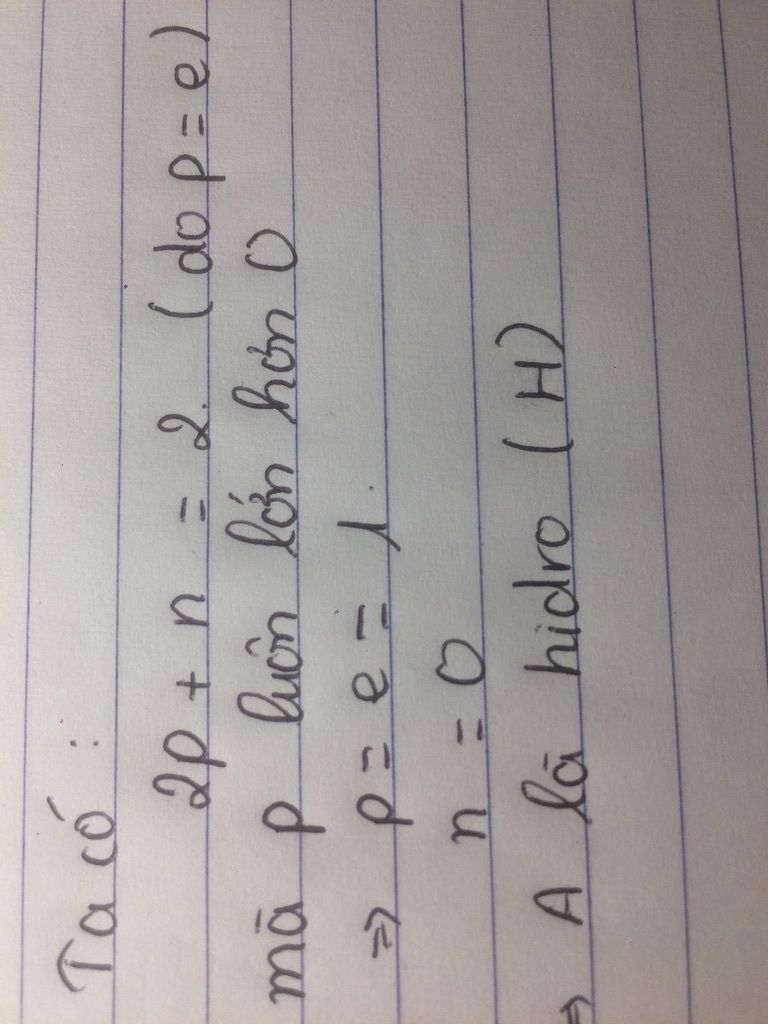 Ta có :
2p + n = 2. (do p = e)
mà p luôn lớn hơn 0
⇒ p = e = 1.
n = 0
⇒ A là hidro (H)